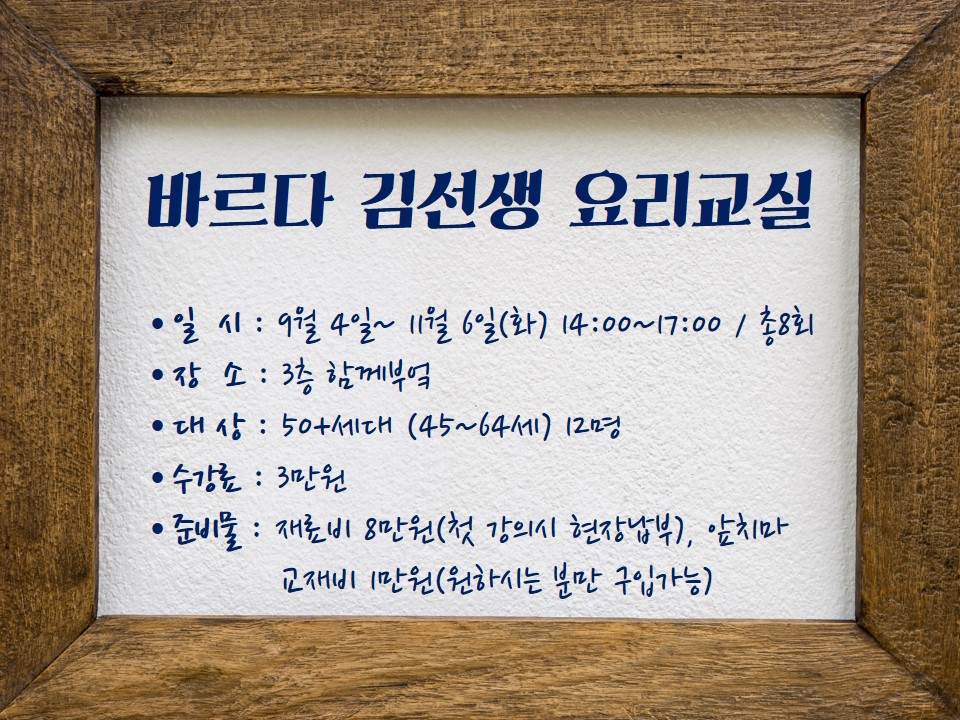 바르다 김선생 요리교실
• 일 시 : 9월 4일~ 11월 6일(화) 14:00~17:00 / 총8회
• 장 소 : 3층 함께부엌
• 대 상 : 50+세대 (45~64세) 12명
• 수강료 : 3만원
• 준비물 : 재료비 8만원(첫 강의시 현장납부), 앞치마
교재비 1만원(원하시는 분만 구입가능)